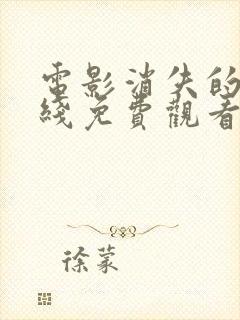 電影消失的
綫免費觀看
徐蒙